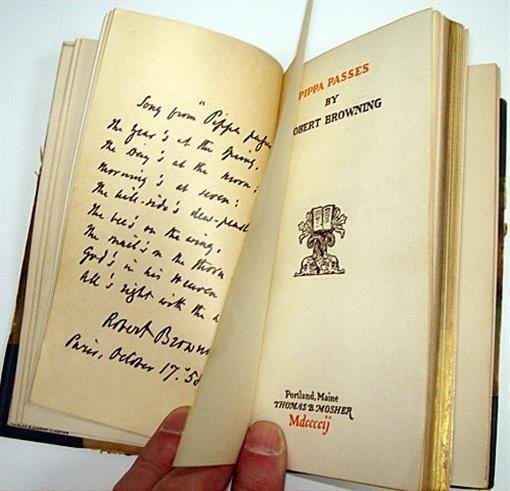 Song from "Pippa passes
The Year's at the Spring,
The Day's at the Noon:
Morning's at Seven:
The hill-side's dew-pearl
The bee's on the wing,
The snail's on the Thorn
God's in his Heaven
All's right with the
Robert Brown
Paris, October 17. 58
PIPPA PASSES
BY
OBERT BROWNING
Portland, Maine
THOMAS B. MOSHER
Mdccccij